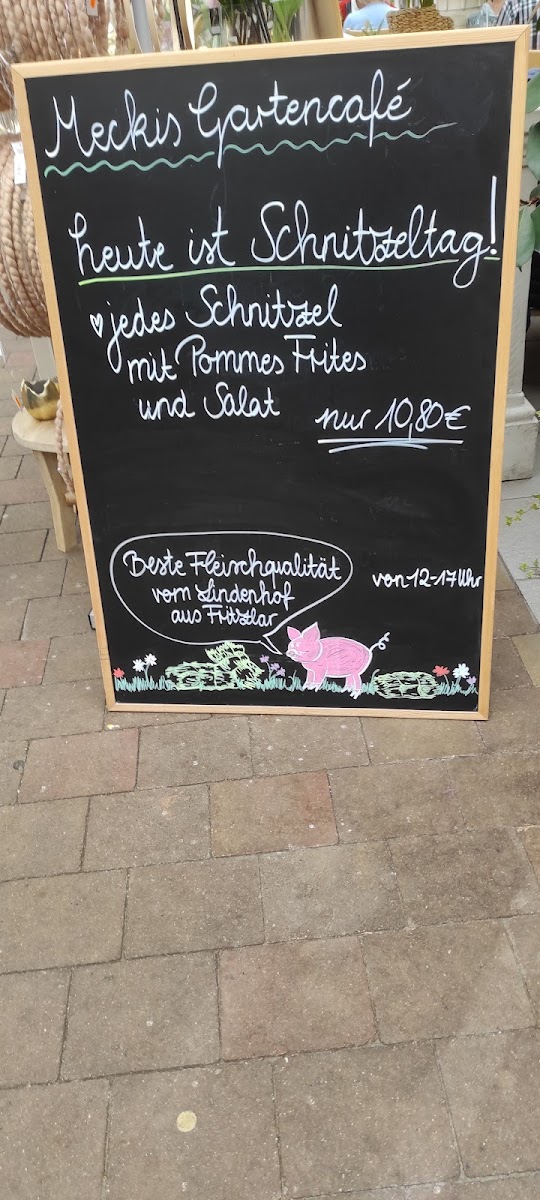 Meckis Gartencafé
heute ist Schnitzeltag!
jedes Schnitzel
mit Pommes Frites
und Salat
nur 10,80€
Beste Fleischqualität
vom Lindenhof
aus Fritzlar
von 12-17 Uhr